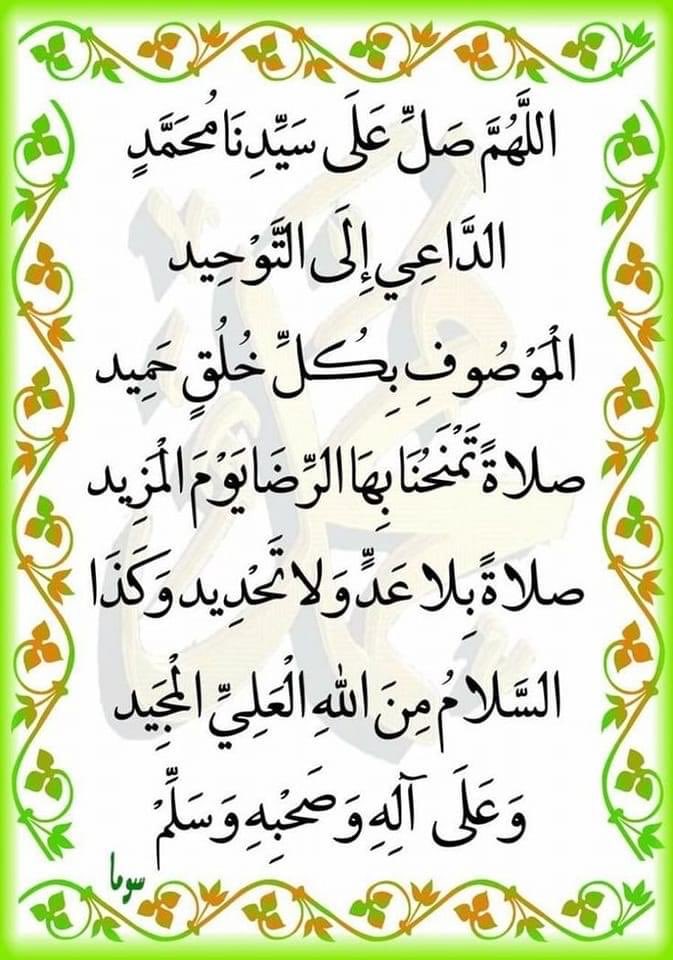 اللَّهُمَّ صَلِّ عَلَى سَيِّدِنَا مُحَمَّدٍ
الدَّاعِي إِلَى التَّوْحِيد
الْمَوْصُوفِ بِكُلِّ خُلُقٍ حَمِيد
صلاةً تَمْنَحُنَا بِهَا الرِّضَا يَوْمَ الْمَزِيد
صلاةً بِلا عَدٍّ وَلا تَحْدِيد وَكَذَا
السَّلامُ مِنَ اللهِ الْعَلِيِّ الْمَجِيد
وَعَلَى آلِهِ وَصَحْبِهِ وَسَلِّمْ
سوما